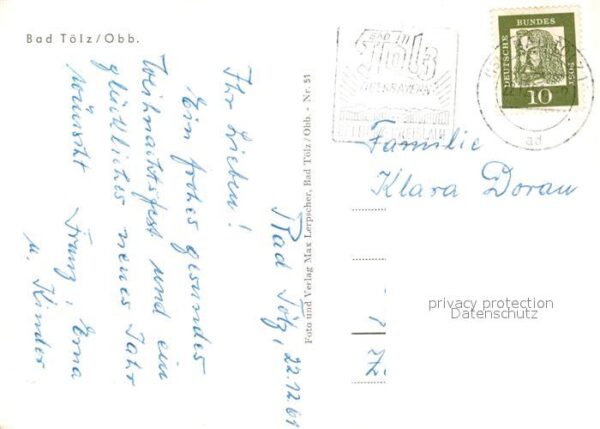 Bad Tölz/Obb.
Bad Tölz, 22.12.61
Ihr Lieben!
Ein frohes gesundes
Weihnachtsfest und ein
glückliches neues Jahr
wünscht Franz, Erna
u. Kinder
Foto und Verlag Max Lerpscher, Bad Tölz/Obb. - Nr. 51
BAD
Tölz
OBERBAYERN
DEUTSCHE
BUNDES
POST
10
Familie
Klara Dorau
privacy protection
Datenschutz
Z.